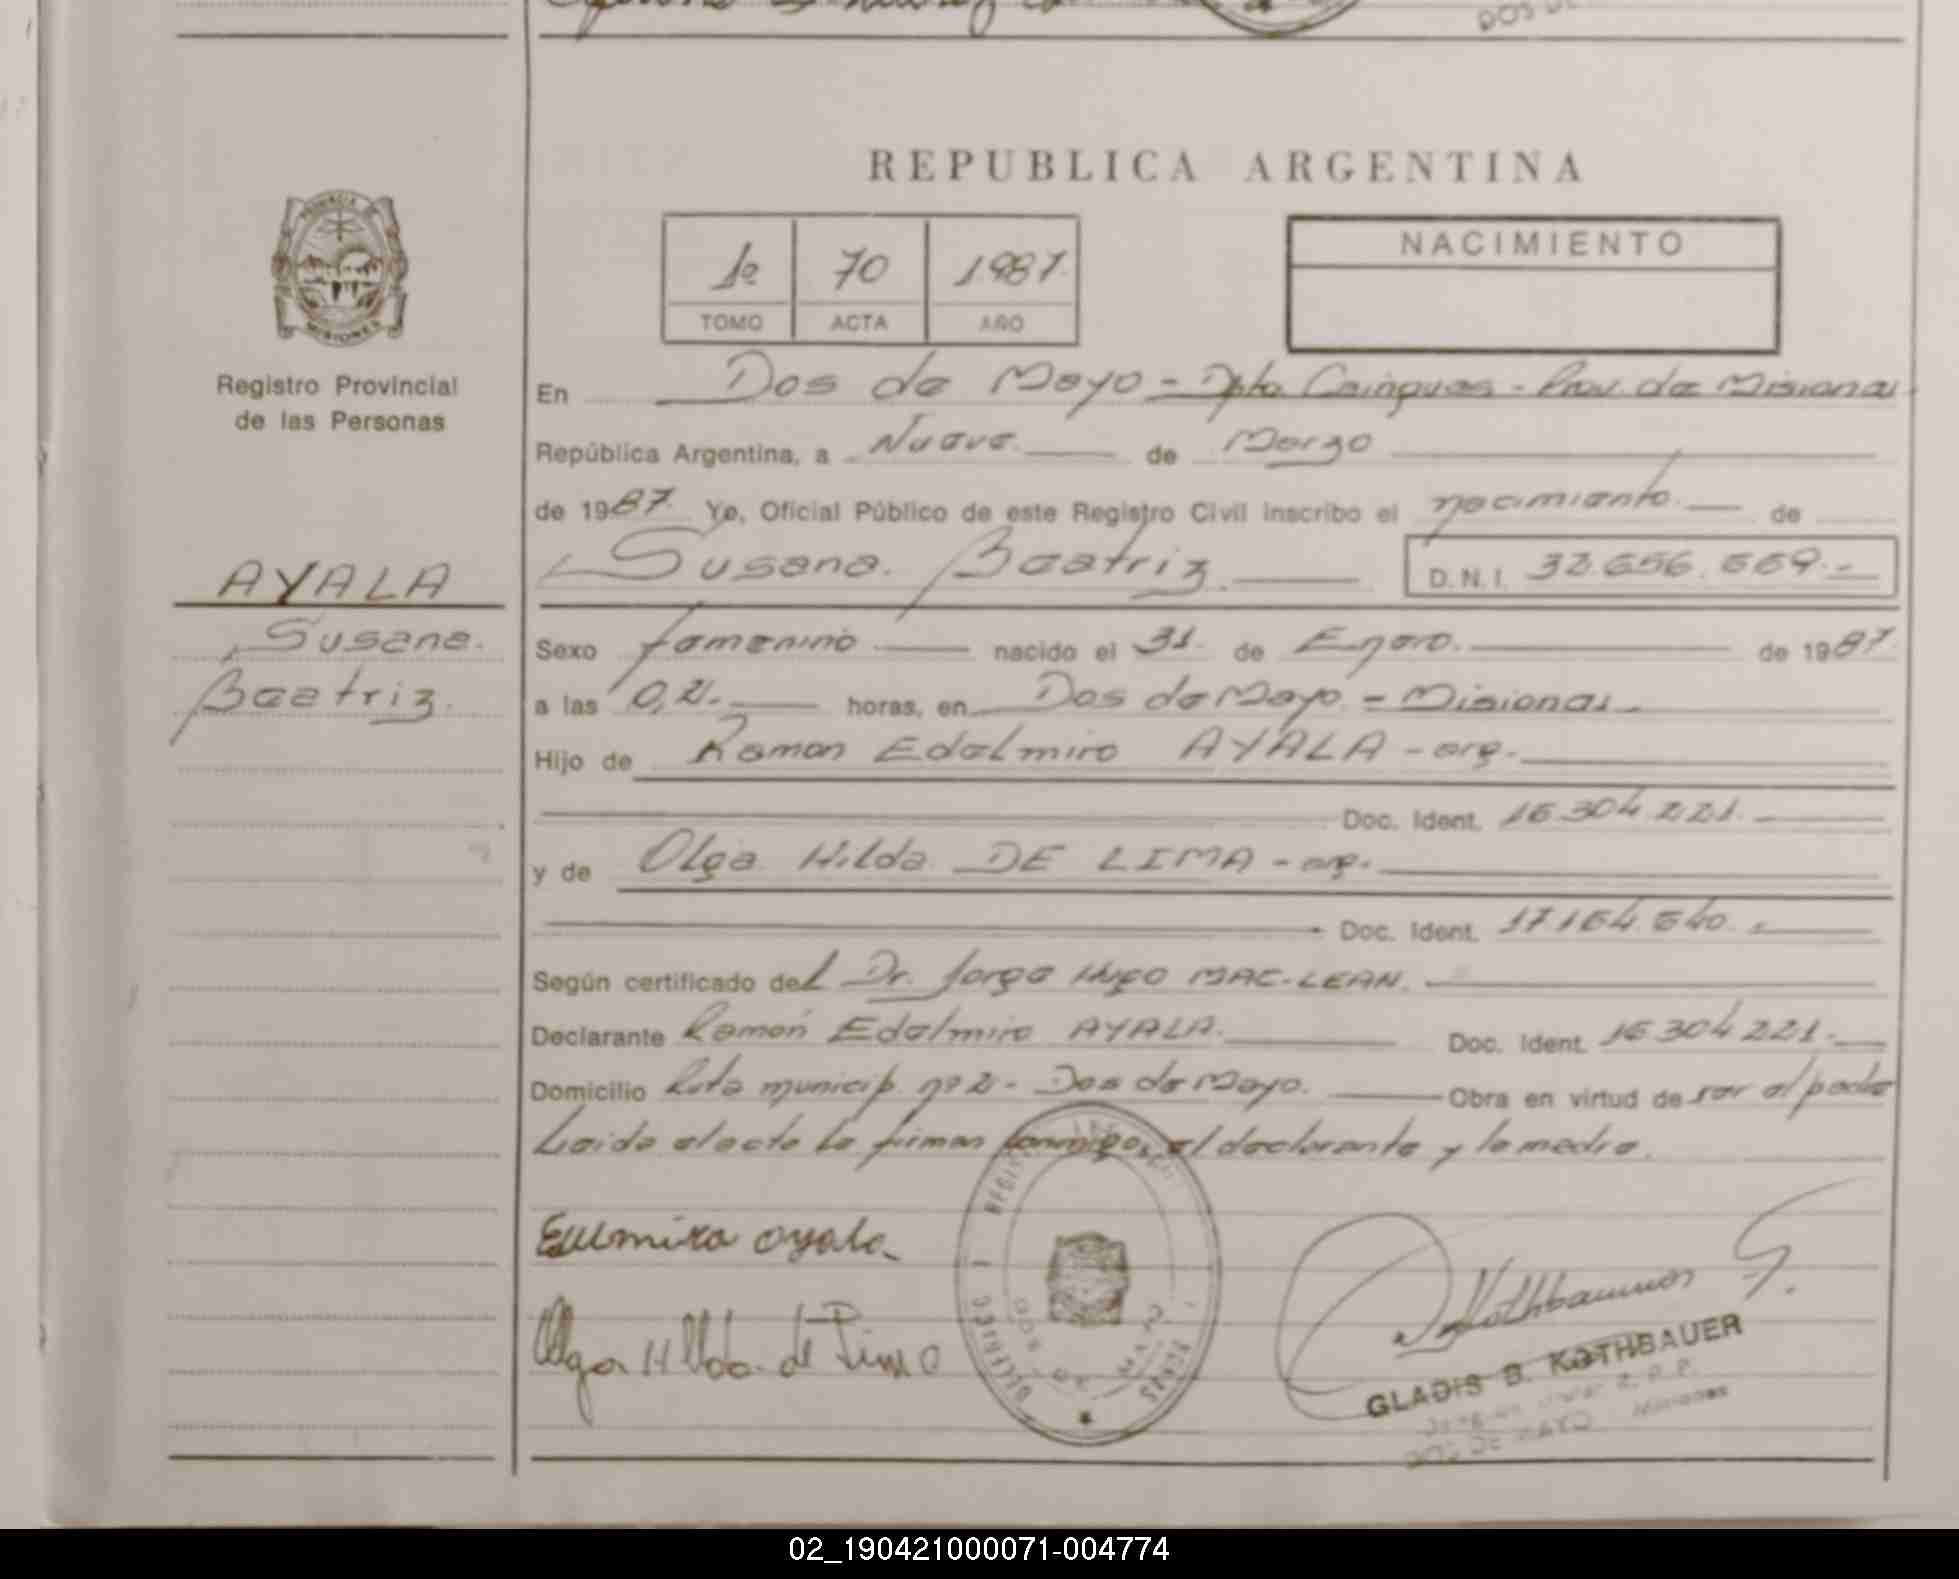 REPUBLICA ARGENTINA
1º 70 1987.
TOMO ACTA AÑO
NACIMIENTO
PROVINCIA DE
MISIONES
Registro Provincial
de las Personas
En Dos de Mayo - Dpto. Cainguas - Prov. de Misiones.
República Argentina, a Nueve. de Marzo
de 1987. Yo, Oficial Público de este Registro Civil inscribo el nacimiento. de
Susana. Beatriz. D.N.I.
AYALA
Susana.
Beatriz.
Sexo femenino nacido el 31. de Enero. de 1987.
a las 0,21. horas, en Dos de Mayo. - Misiones.
Hijo de Ramon Edelmiro AYALA - arg.
Doc. Ident. 16.304.221.
y de Olga Hilda DE LIMA - arg.
Doc. Ident. 17.164.640.
Según certificado del Dr. Jorge Hugo MAC-LEAN.
Declarante Ramón Edelmiro AYALA. Doc. Ident. 16.304.221.
Domicilio Ruta municip. nº 2 - Dos de Mayo. Obra en virtud de ser el padre
Leida el acta la firman conmigo, el declarante y la madre.
ayala
Olga Hilda de Lima
GLADIS B. ROTHBAUER
DOS DE MAYO - Misiones
02_190421000071-004774